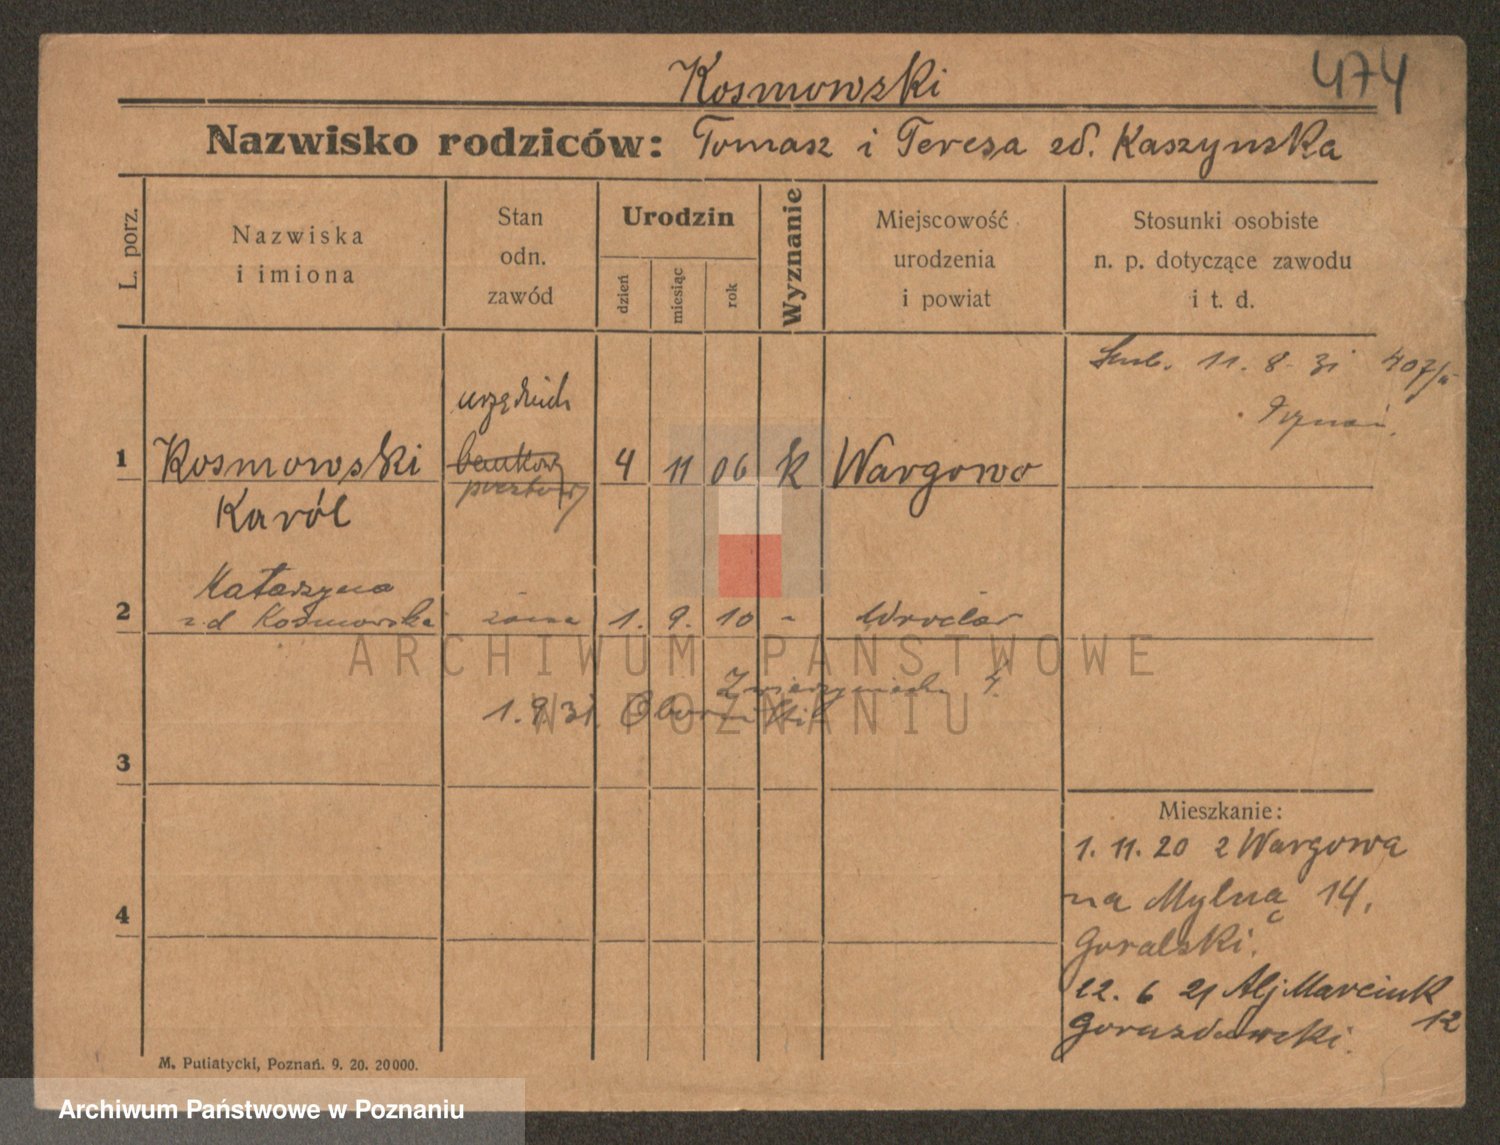 Kosmowski
474
Nazwisko rodziców: Tomasz i Teresa zd. Kaszynska
L. porz.
Nazwiska
i imiona
Stan
odn.
zawód
Urodzin
dzień
miesiąc
rok
Wyznanie
Miejscowość
urodzenia
i powiat
Stosunki osobiste
n. p. dotyczące zawodu
i t. d.
11. 8. 31 407/
Poznań.
urzędnik
1 Kosmowski bankowy 4 11 06 k Wargowo
pocztowy
Karól
Katarzyna
2 zd Kosmowska żona 1. 9. 10 - Wrocław
ARCHIWUM PAŃSTWOWE
W POZNANIU
Zwierzyniecka 4.
1. 9. 31 Oborniki
3
Mieszkanie:
1. 11. 20 z Wargowa
na Mylną 14,
Goralski.
4
22. 6 21 Alj Marcink
12
Gorazdowski.
M. Putiatycki, Poznań. 9. 20. 20000.
Archiwum Państwowe w Poznaniu